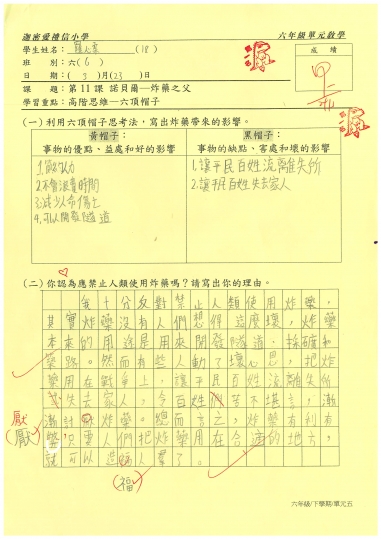 迦密愛禮信小學
六年級單元教學
學生姓名： (18)
班 別：六(6)
日 期：(3)月(23)日
課 題：第11課 諾貝爾—炸藥之父
學習重點：高階思維—六頂帽子
成 績
甲
(一) 利用六頂帽子思考法，寫出炸藥帶來的影響。
黃帽子：
事物的優點、益處和好的影響
黑帽子：
事物的缺點、害處和壞的影響
2.不會浪費時間
3.減少人命傷亡
4.可以開發隧道
1.讓平民百姓流離失所
2.讓平民百姓失去家人
(二) 你認為應禁止人類使用炸藥嗎？請寫出你的理由。
我十分反對禁止人類使用炸藥，
其實炸藥沒有人們想得這麼壞，炸藥
本來的用途是用來開發隧道、採礦和
築路。然而有些人動了壞心思，把炸
藥用在戰爭上，讓平民百姓流離失所
失去家人，令百姓們苦不堪言，漸
漸討厭炸藥。總而言之，炸藥有利有
弊，只要人們把炸藥用在合適的地方，
就可以造福人羣了。
厭
(厭)
(福)
六年級/下學期/單元五